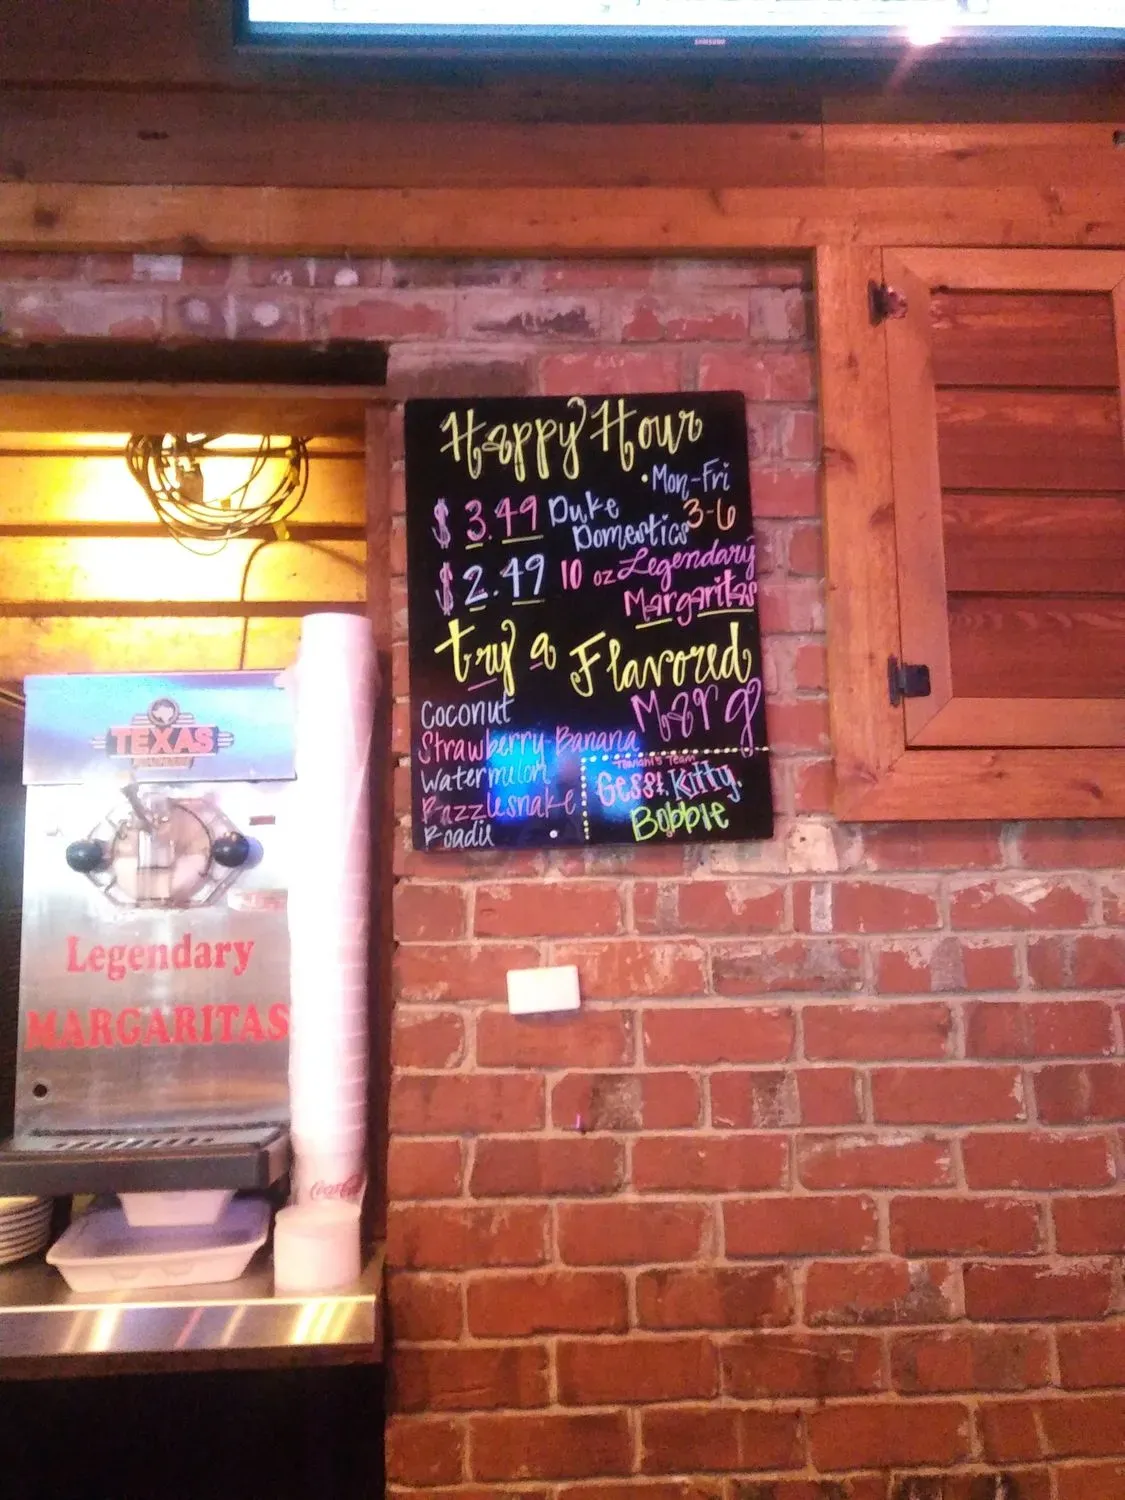 SAMSUNG
Happy Hour
• Mon-Fri
3-6
$3.49 Duke
Domestics
$2.49 10 oz Legendary
Margaritas
try a Flavored
Marg
Coconut
Strawberry Banana
Watermelon
Razzlesnake
Roadie
Team
Gess!, Kitty,
Bobbie
TEXAS
Legendary
MARGARITAS
Coca-Cola